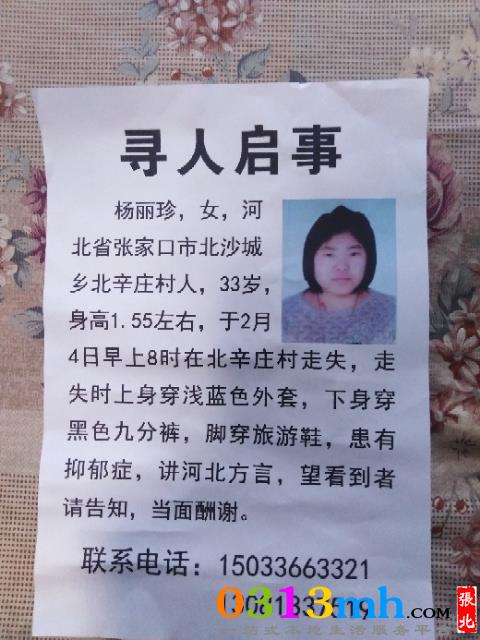 寻人启事
杨丽珍，女，河
北省张家口市北沙城
乡北辛庄村人，33岁，
身高1.55左右，于2月
4日早上8时在北辛庄村走失，走
失时上身穿浅蓝色外套，下身穿
黑色九分裤，脚穿旅游鞋，患有
抑郁症，讲河北方言，望看到者
请告知，当面酬谢。
联系电话：15033663321
0313mh.com
張北